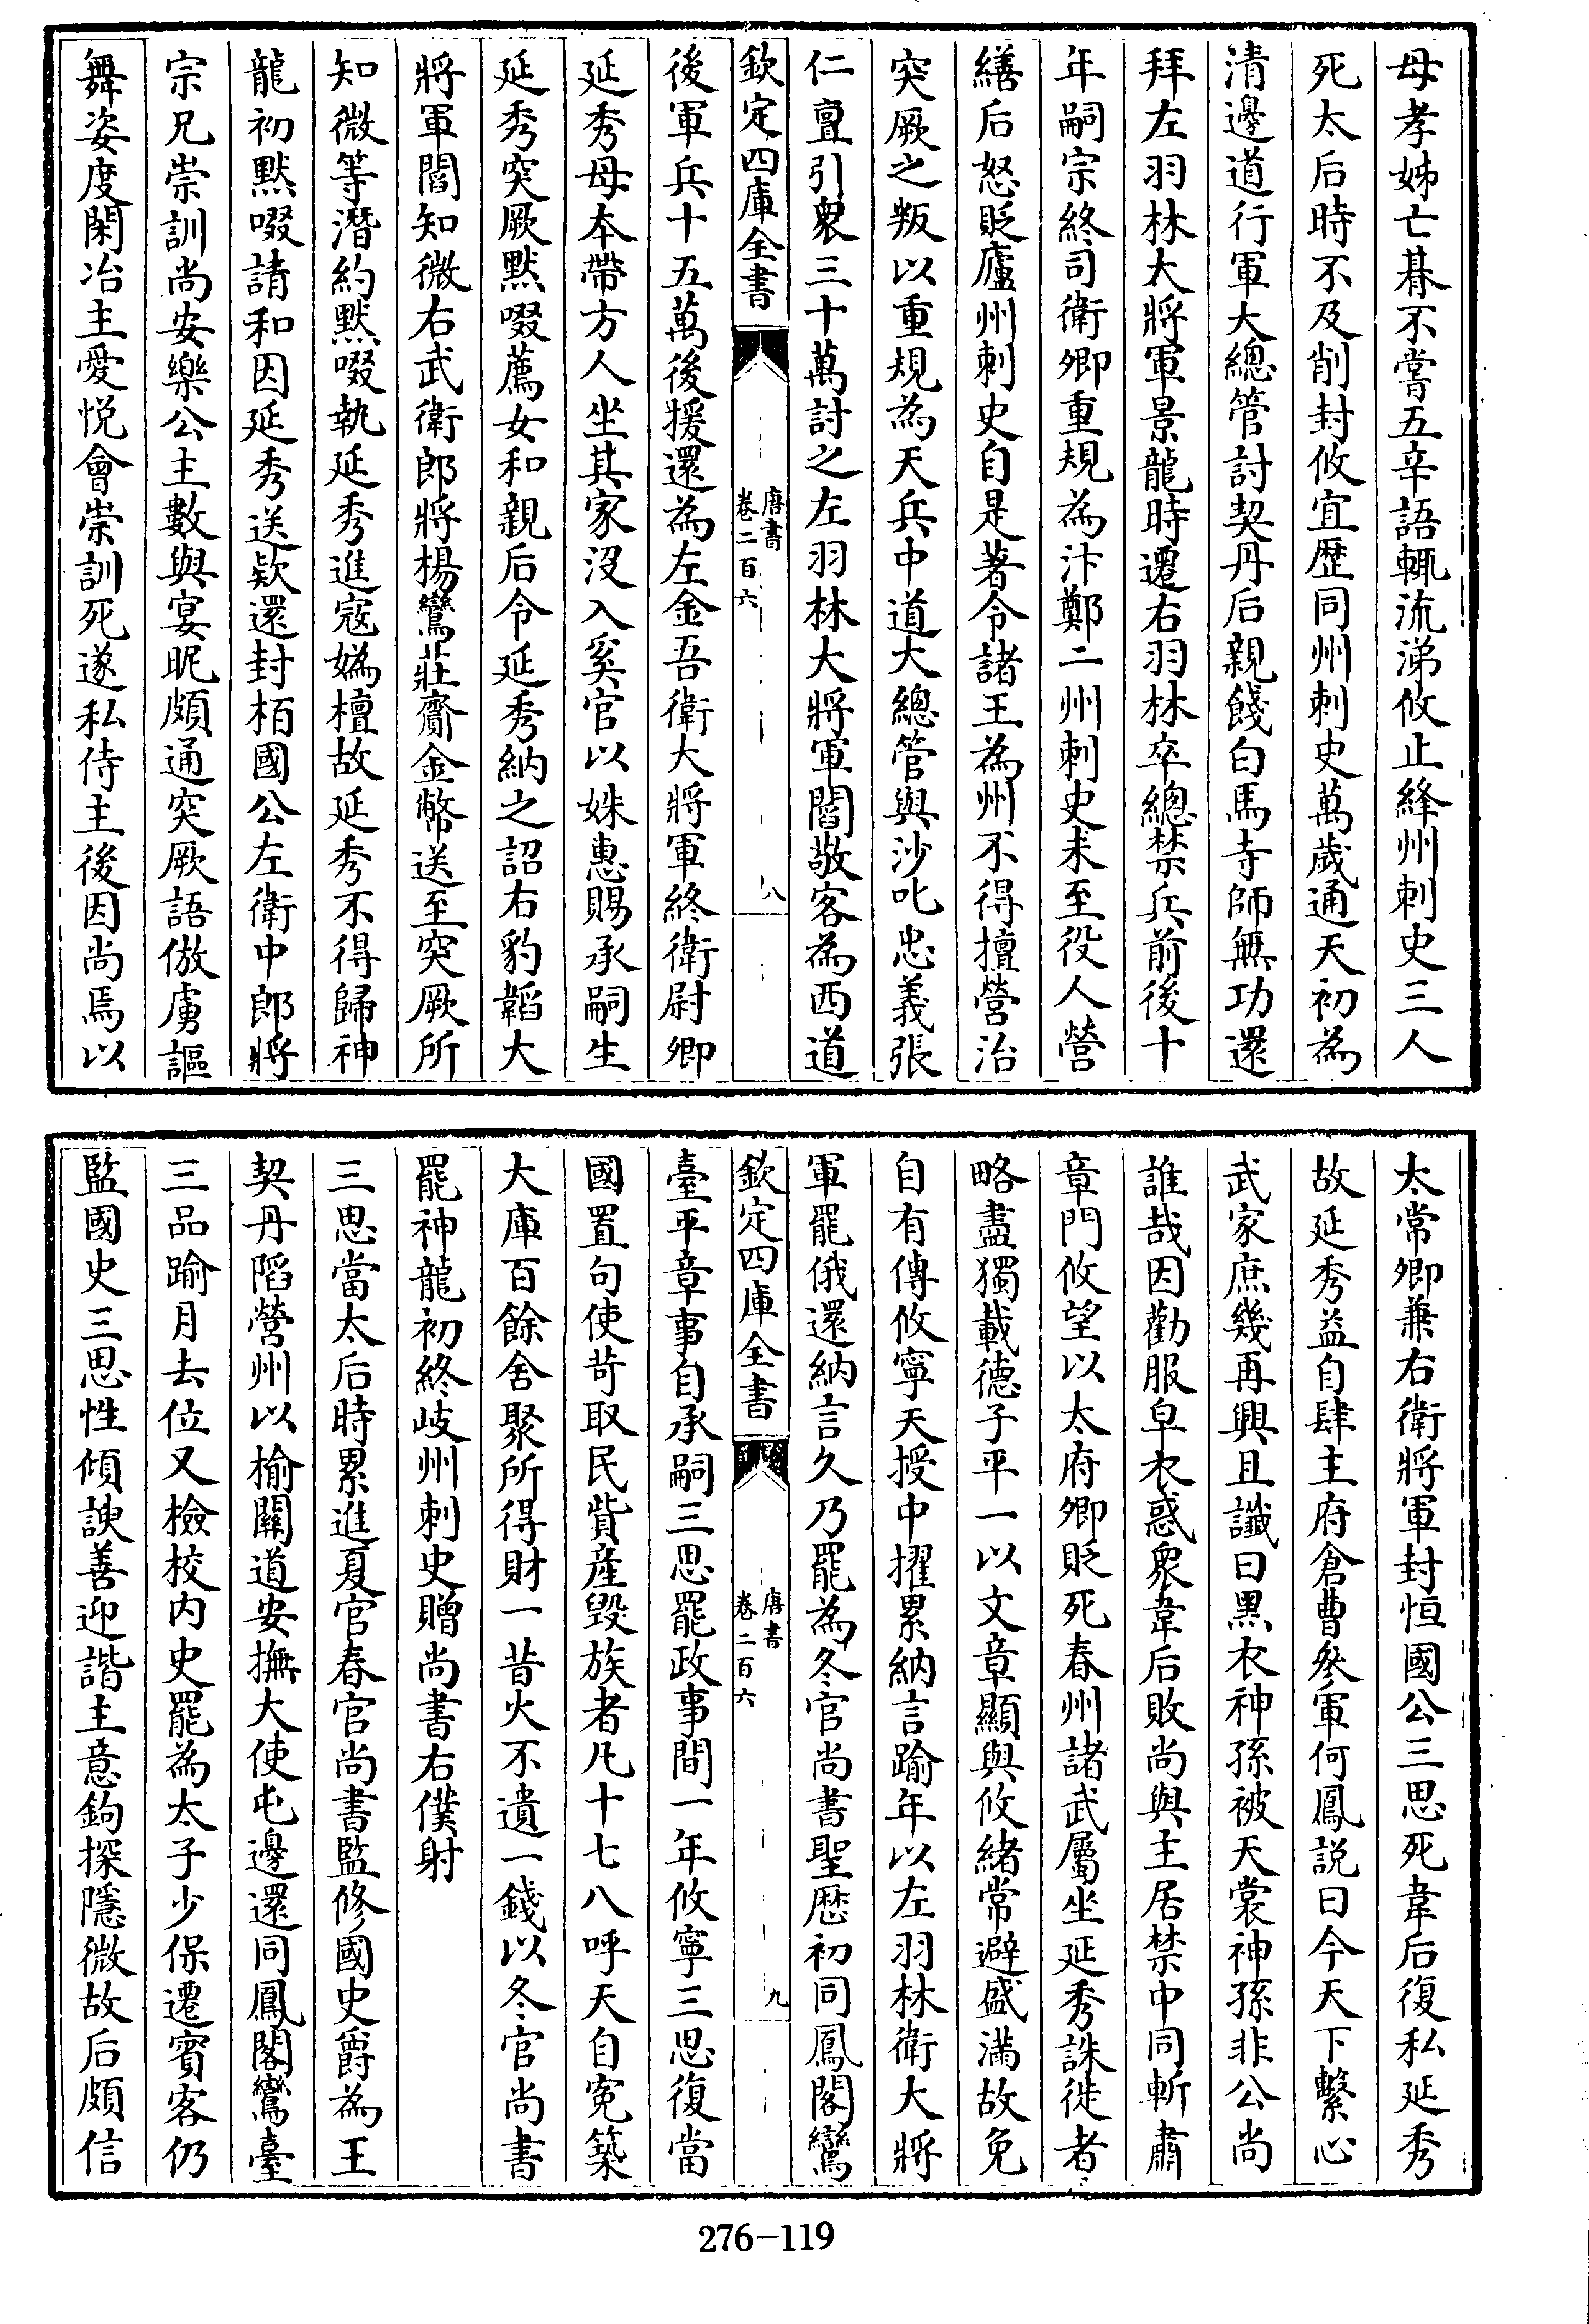 母孝姊亡朞不嘗五辛語輒流涕攸止絳州刺史三人
死太后時不及削封攸宜歴同州刺史萬歲通天初為
清邊道行軍大總管討契丹后親餞白馬寺師無功還
拜左羽林大將軍景龍時遷右羽林卒總禁兵前後十
年嗣宗終司衛卿重規為汴鄭二州刺史未至役人營
繕后怒貶廬州刺史自是著令諸王為州不得擅營治
突厥之叛以重規為天兵中道大總管與沙吒忠義張
仁亶引衆三十萬討之左羽林大將軍閻敬客為西道
欽定四庫全書
唐書
卷二百六
八
後軍兵十五萬後援還為左金吾衛大將軍終衛尉卿
延秀母本帶方人坐其家沒入奚官以姝惠賜承嗣生
延秀突厥黙啜薦女和親后令延秀納之詔右豹韜大
將軍閻知微右武衛郎將楊鸞莊齎金幣送至突厥所
知微等潛約黙啜執延秀進寇媯檀故延秀不得歸神
龍初黙啜請和因延秀送欵還封栢國公左衛中郎將
宗兄崇訓尚安樂公主數與宴昵頗通突厥語倣虜謳
舞姿度閑冶主愛悅會崇訓死遂私侍主後因尚焉以
太常卿兼右衛將軍封恒國公三思死韋后復私延秀
故延秀益自肆主府倉曹參軍何鳳説曰今天下繫心
武家庶幾再興且讖曰黒衣神孫被天裳神孫非公尚
誰哉因勸服皁衣惑衆韋后敗尚與主居禁中同斬肅
章門攸望以太府卿貶死春州諸武屬坐延秀誅徙者
略盡獨載德子平一以文章顯與攸緒常避盛滿故免
自有傳攸寧天授中擢累納言踰年以左羽林衛大將
軍罷俄還納言久乃罷為冬官尚書聖歴初同鳳閣鸞
欽定四庫全書
唐書
卷二百六
九
臺平章事自承嗣三思罷政事間一年攸寧三思復當
國置句使苛取民貲産毀族者凡十七八呼天自寃築
大庫百餘舍聚所得財一昔火不遺一錢以冬官尚書
罷神龍初終岐州刺史贈尚書右僕射
三思當太后時累進夏官春官尚書監修國史爵為王
契丹陷營州以榆關道安撫大使屯邊還同鳳閣鸞臺
三品踰月去位又檢校内史罷為太子少保遷賓客仍
監國史三思性傾諛善迎諧主意鉤探隱微故后頗信
276-119